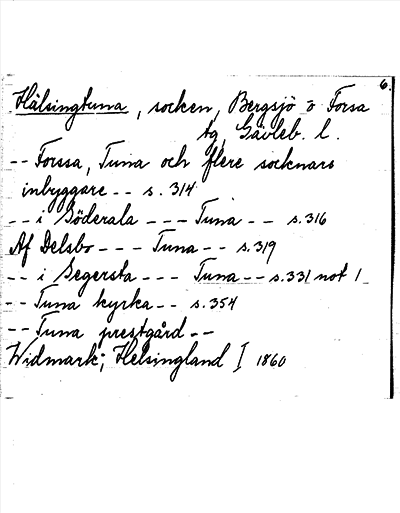 6.
Hälsingtuna, socken, Bergsjö o Forsa
tg, Gävleb. l.
-- Forssa, Tuna och flere socknars
inbyggare -- s. 314
-- i Söderala --- Tuna -- s. 316
Af Delsbo --- Tuna -- s. 319
-- i Segersta --- Tuna -- s. 331 not 1
-- Tuna kyrka -- s. 354
-- Tuna prestgård --
Widmark; Helsingland I 1860